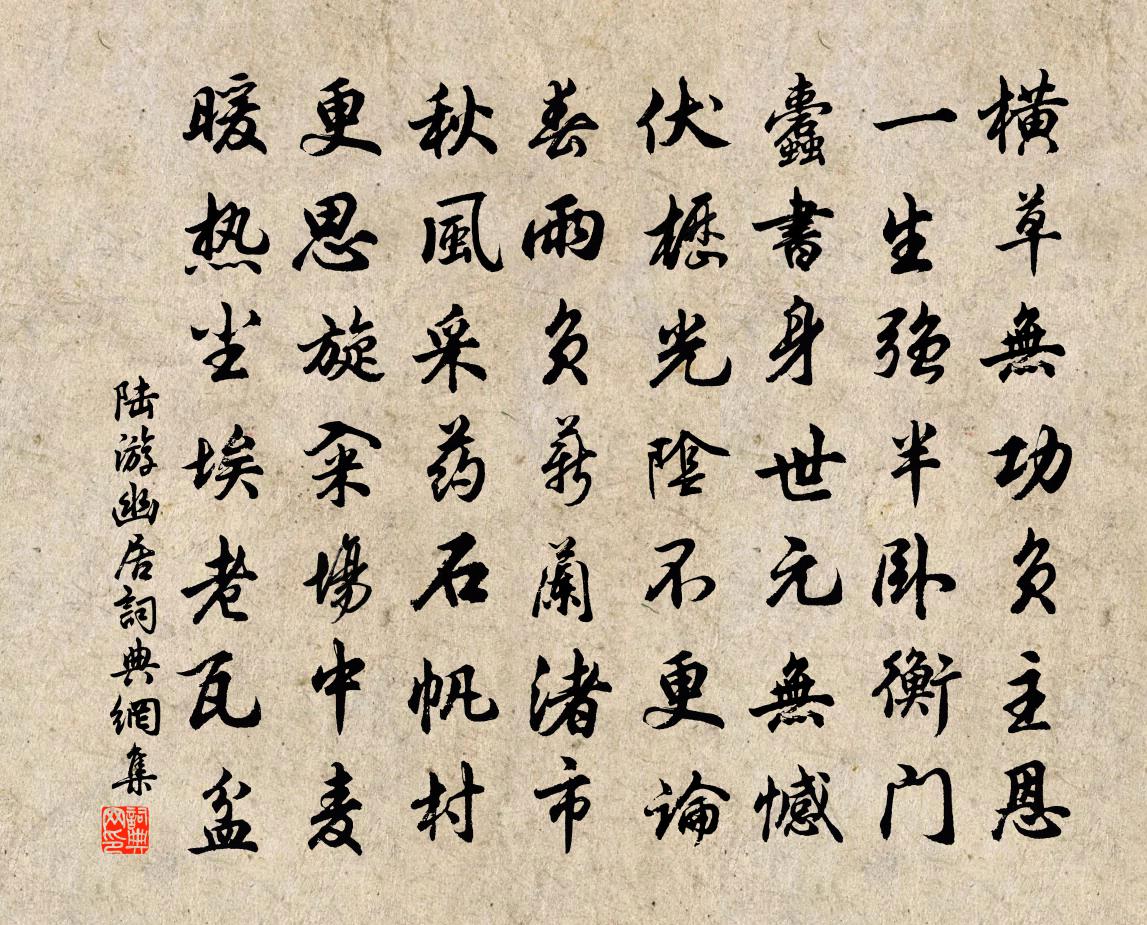 橫草無功负主恩
一生强半卧衡门
蠹書身世元無憾
伏櫪光陰不更論
春雨负薪蘭渚市
秋風采药石帆村
更思旋籴場中麦
暖热尘埃老瓦盆
陆游幽居詞典網集
詞典网印